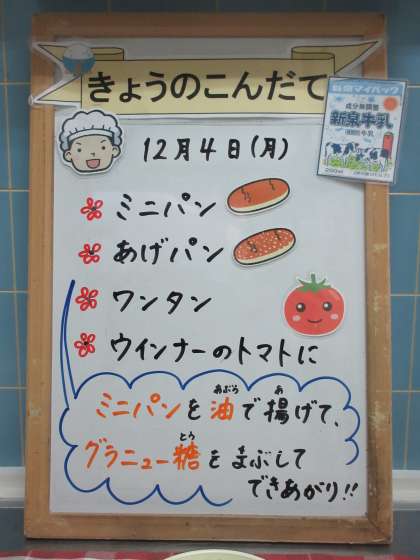 きょうのこんだて
12月4日(月)
ミニパン
あげパン
ワンタン
ウインナーのトマトに
ミニパンを油で揚げて、
あぶら
あ
グラニュー糖をまぶして
とう
できあがり!!
新泉マイパック
成分無調整
新泉牛乳